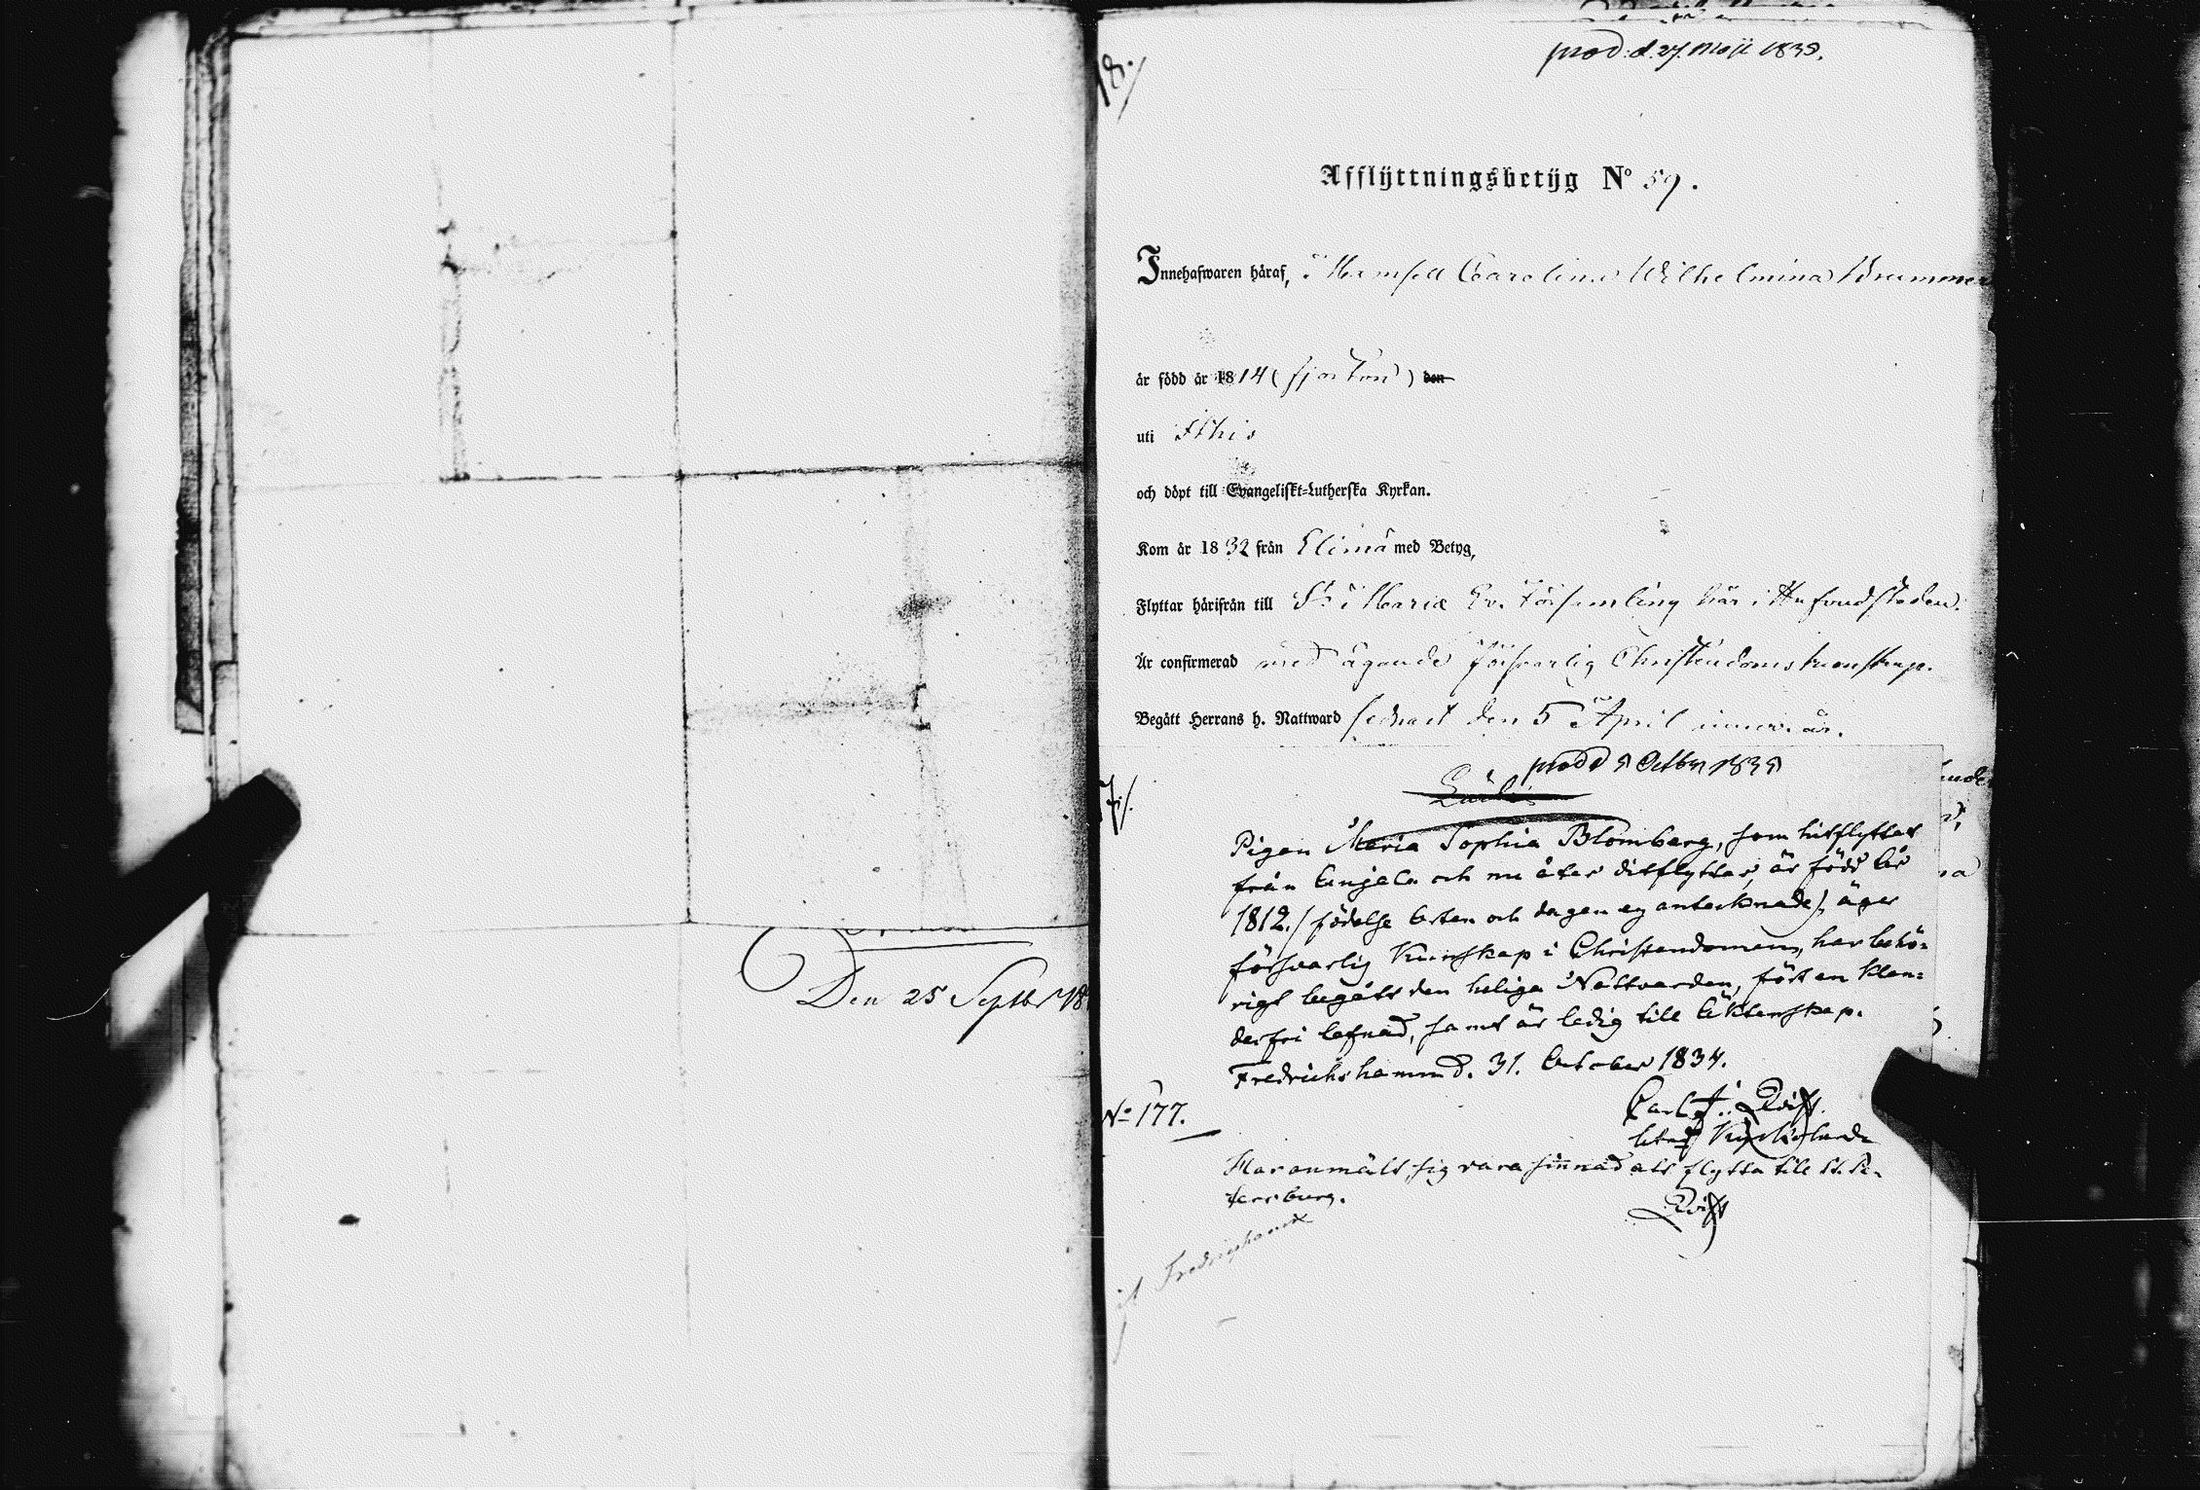 Den 25 Septbr 18
prod. d. 27. Maji 1835.
18./
Afflÿttningsbetÿg No 59.
Innehafwaren häraf, Mamsell Carolina Wilhelmina Brummer
är född år 1814 (fjorton) den
uti Ithis
och döpt till Evangeliskt-Lutherska Kyrkan.
Kom år 1832 från Elimä med Betyg,
Flyttar härifrån till St Mariæ Ev. Församling här i Hufvudstaden.
Är confirmerad med ägande försvarlig Christendoms kunskap.
Begått Herrans h. Nattward sednast den 5 April innev. år.
prod d 9 Octbr 1835
7./.
Pigan Maria Sophia Blomberg, som hitflyttat
från Anjala och nu åter ditflyttar, är född År
1812./födelse Orten och dagen ej antecknade/, äger
försvarlig Kunskap i Christendomen, har behö-
rigt begått den heliga Nattvarden, fört en klan-
derfri lefnad, samt är ledig till Äktenskap.
Fredrichshamn d. 31. October 1834.
Carl F.
No 177.
Har anmält sig vara sinnad att flytta till St. Pe-
tersburg.
Fredrichshamn